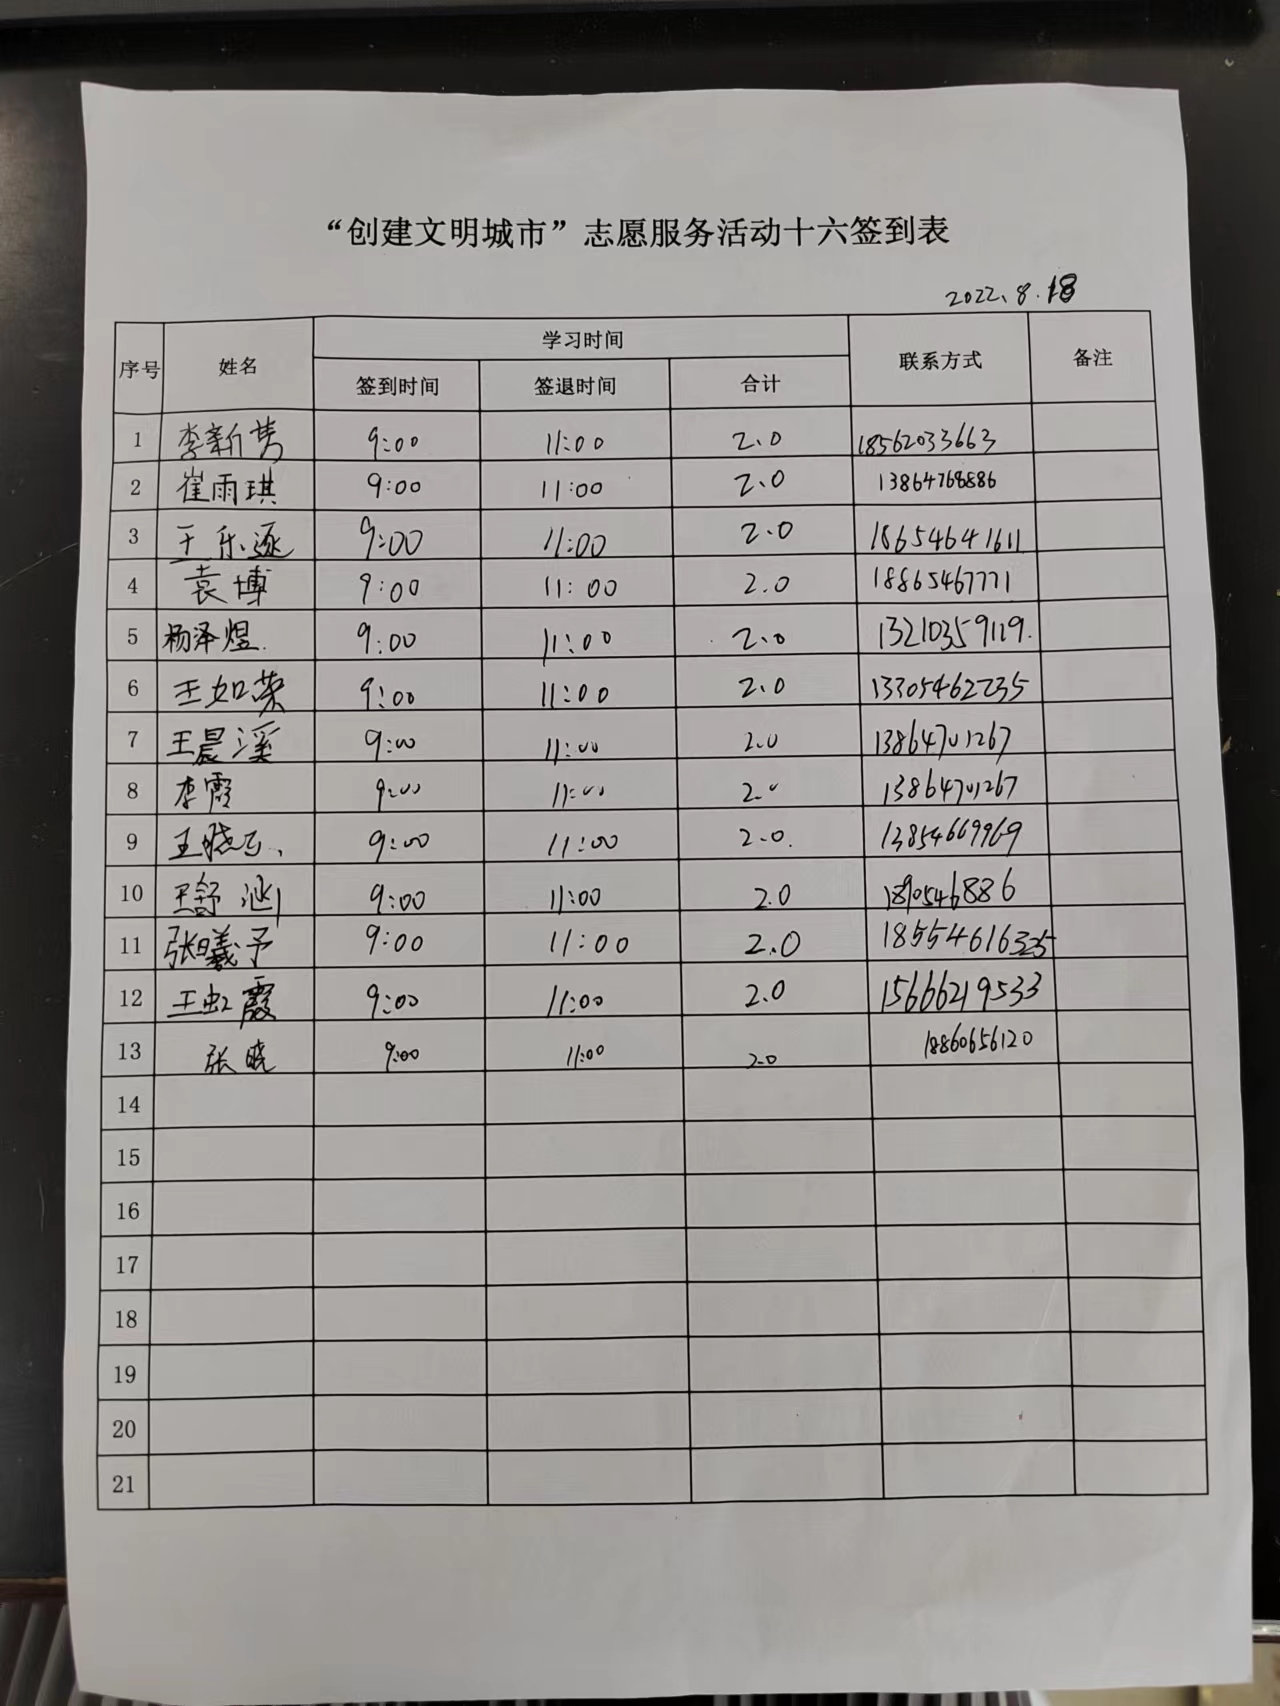 “创建文明城市”志愿服务活动十六签到表
2022.8.18
序号 姓名 学习时间 联系方式 备注
签到时间 签退时间 合计
1 李新隽 9:00 11:00 2.0 18562033663
2 崔雨琪 9:00 11:00 2.0 13864768886
3 王乐逐 9:00 11:00 2.0 18654641611
4 袁博 9:00 11:00 2.0 18865467771
5 杨泽煜. 9:00 11:00 2.0 13210359119.
6 王如荣 9:00 11:00 2.0 13305462735
7 王晨溪 9:00 11:00 2.0 13864701267
8 李霞 9:00 11:00 2.0 13864701267
9 王晓云 9:00 11:00 2.0. 13854669969
10 王舒涵 9:00 11:00 2.0
11 张曦予 9:00 11:00 2.0 18554616325
12 王虹霞 9:00 11:00 2.0 15666219533
13 张晓 9:00 11:00 2.0 18860656120
14
15
16
17
18
19
20
21